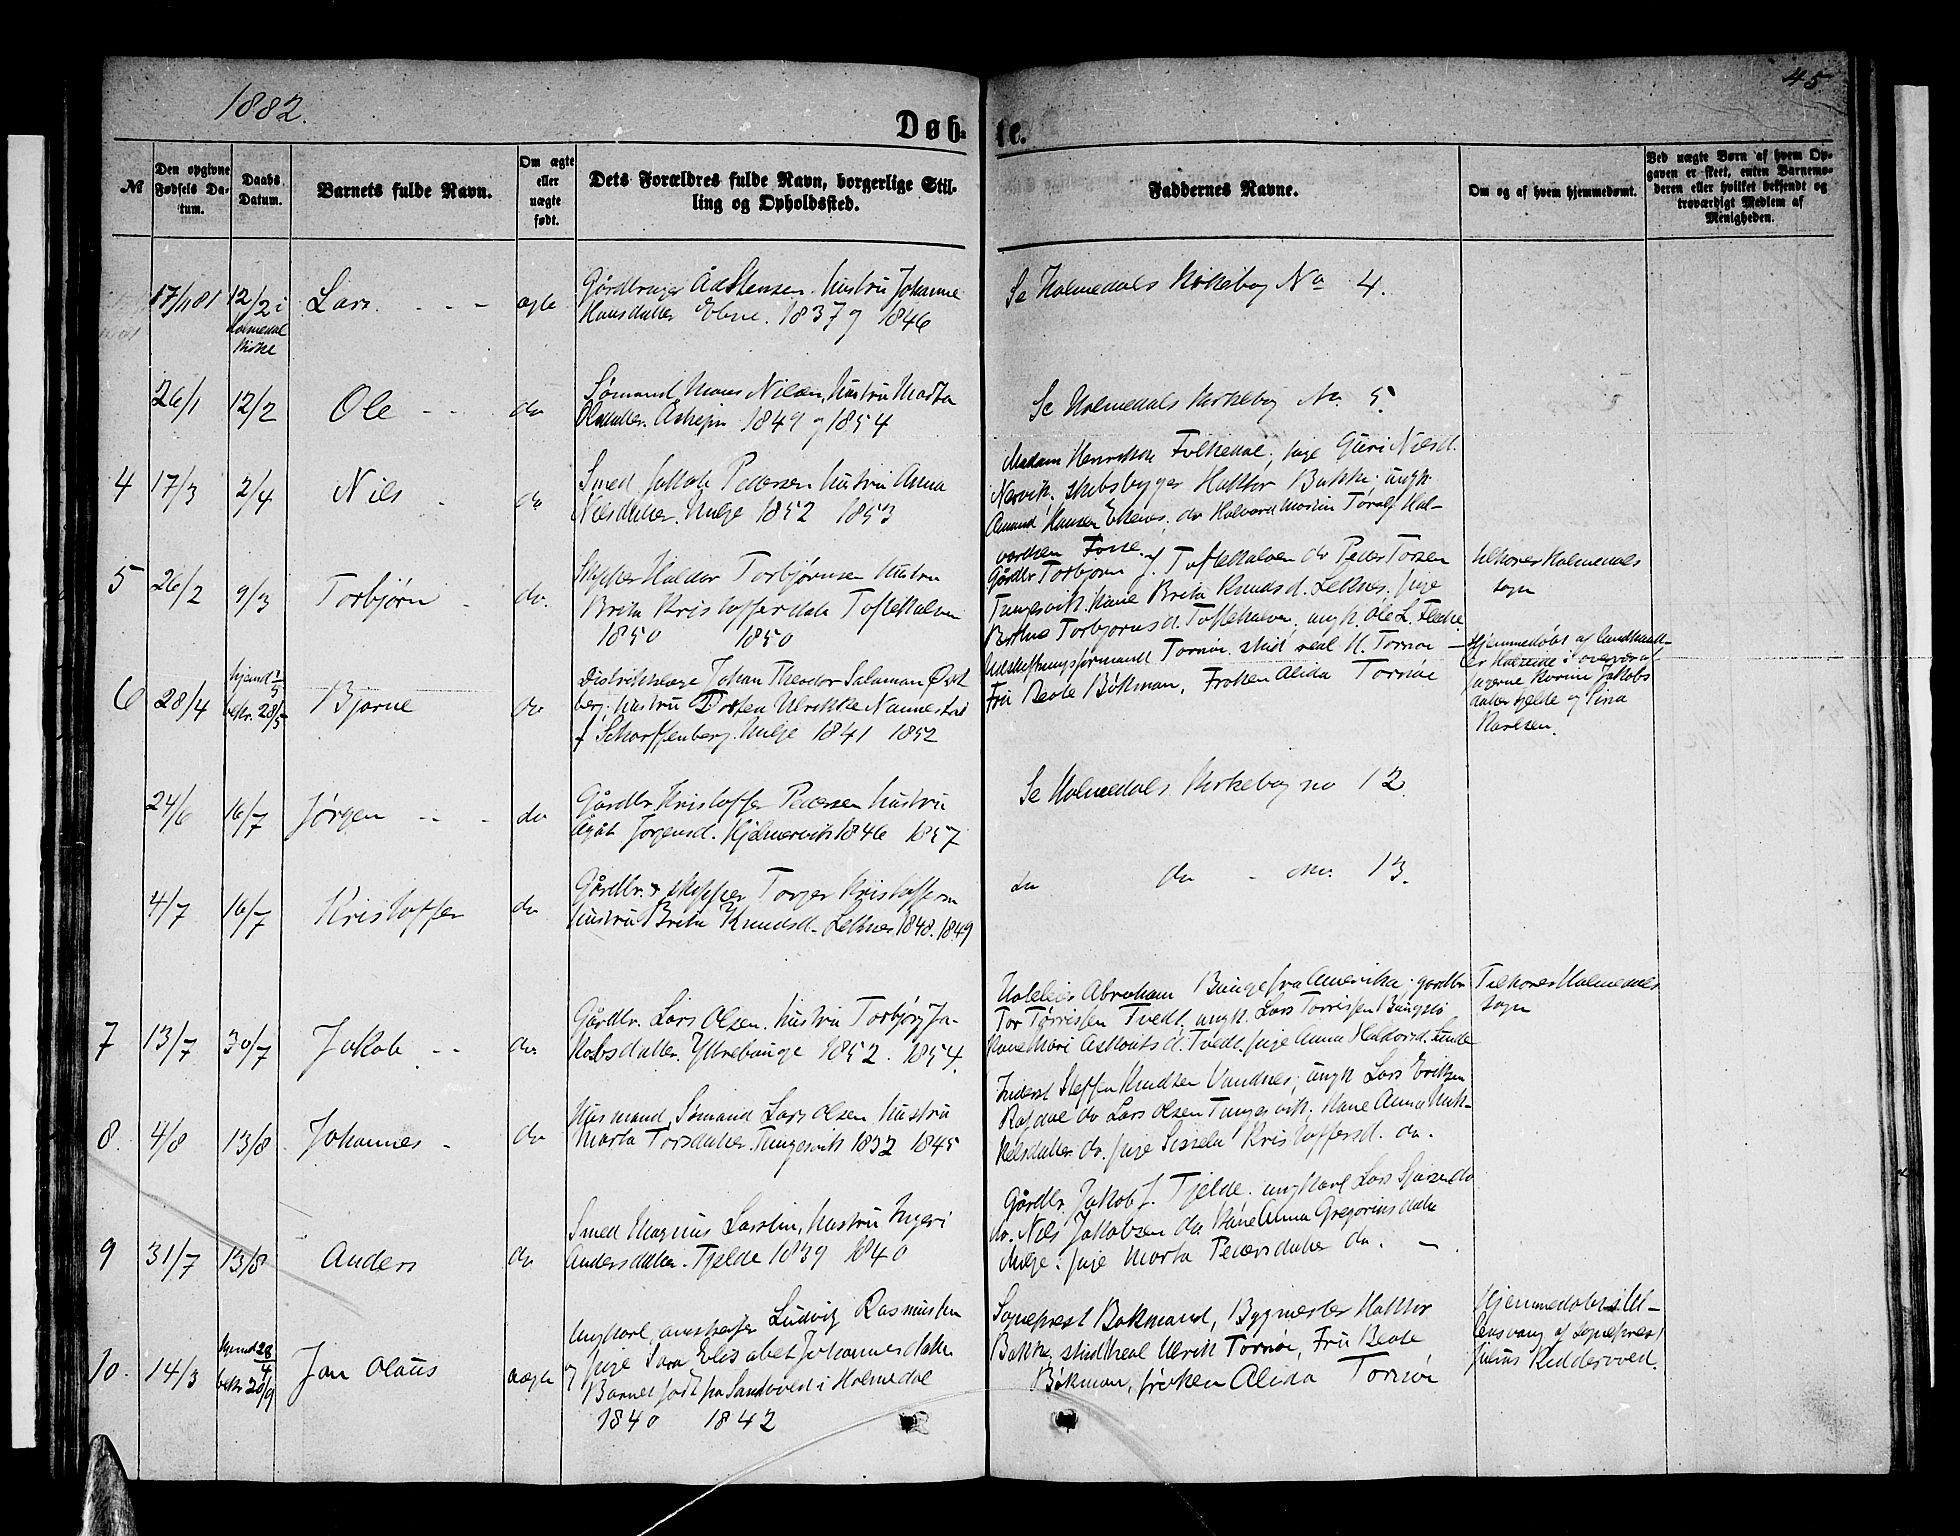 1882.
45
Døb-
te.
№
Den opgivne Fødsels Datum.
Daabs Datum.
Barnets fulde Navn.
Om ægte eller uægte født.
Dets Forældres fulde Navn, borgerlige Stilling og Opholdssted.
Faddernes Navne.
Om og af hvem hjemmedøbt.
Ved uægte Børn af hvem Opgaven er skeet, enten Barnemoderen eller hvilket bekjendt og troværdigt Medlem af Menigheden.
12/2 i
Holmedal
Kirke
Lars
ægte
Hustru Johanne
Hansdatter Ebne. 1837 og 1846
Se Holmedals Kirkebog No 4.
26/1
12/2
Ole
do
Sømand Mons Nilsen, Hustru Marta
Olsdatter 1849 og 1854
Se Holmedals Kirkebog No. 5.
4
17/3
2/4
Nils
do
Smed Jakob Pedersen Hustru Anna
Nilsdatter. Mulje 1852 1853
Madam Henrikke Folkedal, pige Guri Nilsd.
Nervik. Skibsbygger Haktor Bakke; ungk.
Amund Hansen Ekenes, do Halvard Martin Toralf Hal-
vorsen Fosse.
5
26/2
9/3
Torbjørn
do.
Skipper Haldor Torbjørnsen Hustru
Brita Kristofferdatr Toftekalven
1850 1850
Gårdbr Torbjørn J. Toftekalven do Peder Torsen
Tungesvik. Kone Brita Knudsd. Leknes. pige
Berthe Torbjørnsd. Toftekalven. ungk. Ole L.
tilhører Holmedals
sogn
6
28/4
hjemd 1/5
bekr. 28/5
Bjarne
do
Distriktslæge Johan Theodor Salamon Øst
berg. Hustru Ulrikke Nannestad
f. Scharffenberg. Mulje 1841 1852
Udskiftningsformand Tornøe. stud real H. Tornøe
Fru Beate Bøkman, Frøken Alida Tornøe
Hjemmedøbt af Landhand-
ler i overvær af
pigerne Karine Jakobs
datter Tjelde og Pina
Karlsen.
24/6
16/7
Jørgen
do
Gårdbr Kristoffer Pedersen Hustru
Agåt Jørgensd. 1846 1857
Se Holmedals Kirkebog no 12.
4/7
16/7
Kristoffer
do
Gårdbr. & Skipper Torger Kristoffersen
Hustru Brita Knudsd. Leknes 1848. 1849
do do no. 13.
7
13/7
30/7
Jakob
do
Gårdbr. Lars Olsen. Hustru Torbjørg Ja-
kobsdatter. Ytrebauge 1852. 1854.
Abraham Bauge fra Amerika. gardbr
Tor Tørrissen Tvedt. ungk. Lars Torrissen
Kone Mari d. Tvedt. pige Anna Haldorsd.
Tilhører Holmedals
sogn
8.
4/8
13/8
Johannes
do
Husmand, Sømand Lars Olsen Hustru
Marta Torsdatter. Tungesvik 1832 1845
Inderst Steffen Knudsen Vandnes; ungk Lars Eriksen
do Lars Olsen Tungesvik. Kone Anna Mik-
kelsdatter do. pige Sissela Kristoffersd. do.
9
31/7
13/8
Anders
do
Smed Magnus Larsen, Hustru Ingeri
Andersdatter. Tjelde 1839 1840
Gårdbr. Jakob J. Tjelde. ungkarl Lars do
do. Nils Jakobsen do. Kone Anna Gregoriusdatter
Mulje: pige Marta Pedersdatter do.
10.
14/3
hjemd 28/4
bekr. 20/9
Jan Olaus
uægte
Ungkarl Ludvig Rasmussen
og pige Sara Elisabet Johannesdatter
Barnet født på Sandvold i Holmedal
1840 1842
Sogneprest Bøkmand, Bygmester Haktor
Bakke, stud real Ulrik Tornøe, Fru Beate
Bøkman, frøken Alida Tornøe
Hjemmedøbt i Ul-
lensvang af sogneprest
Julius Riddervold.